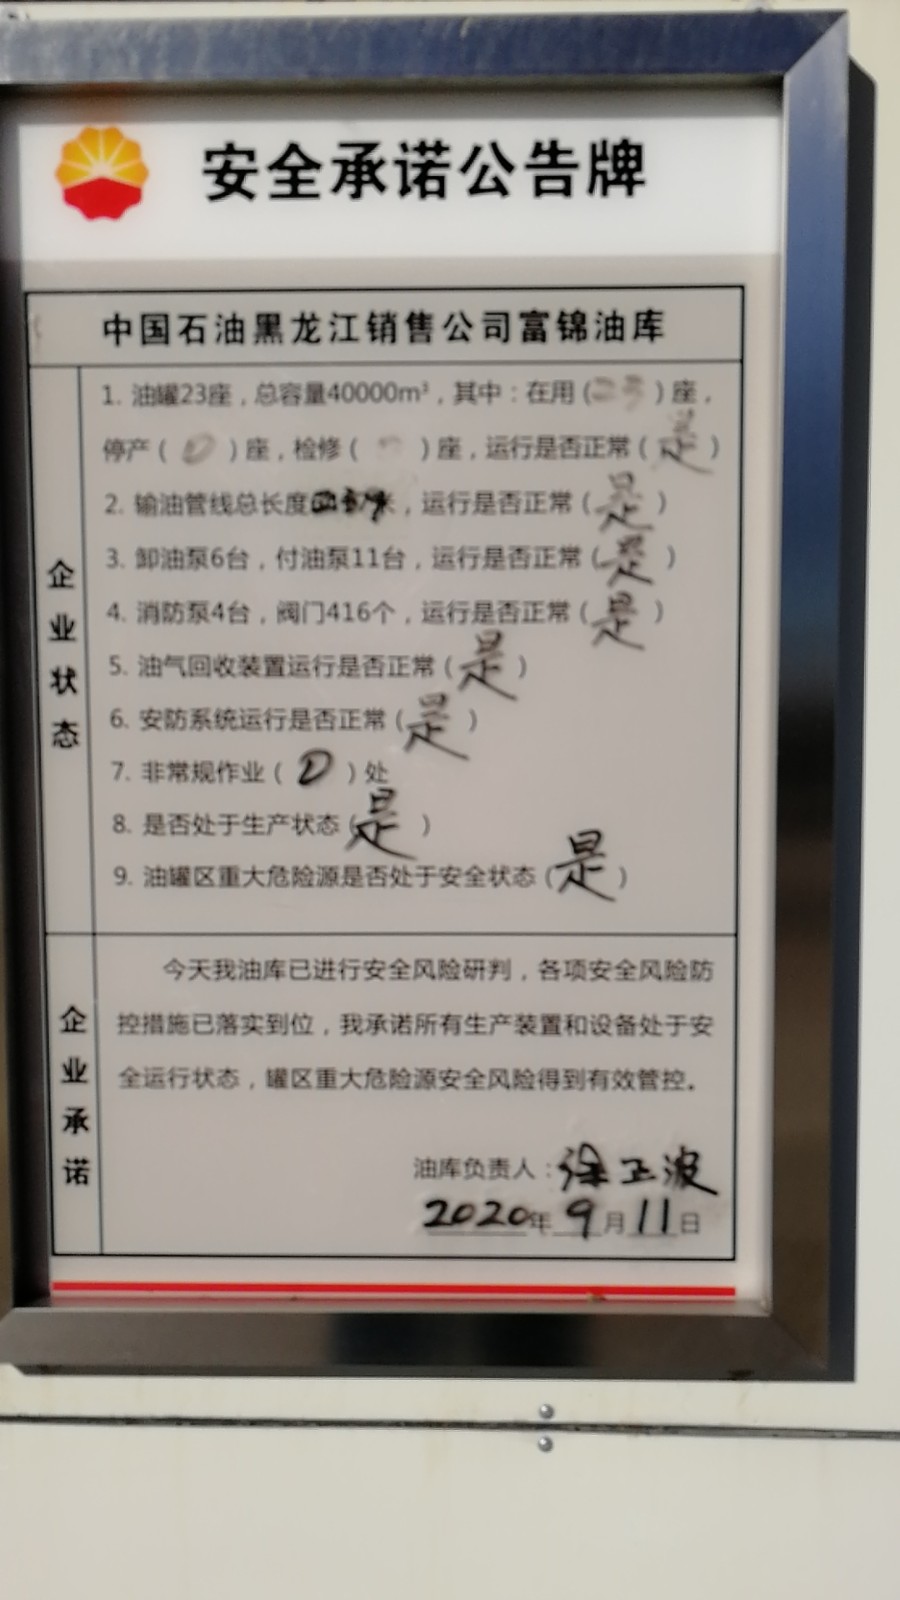 安全承诺公告牌
中国石油黑龙江销售公司富锦油库
企业状态
1. 油罐23座，总容量40000m³，其中：在用（23）座，
停产（0）座，检修（ ）座，运行是否正常（是）
2. 输油管线总长度 米，运行是否正常（是）
3. 卸油泵6台，付油泵11台，运行是否正常（是）
4. 消防泵4台，阀门416个，运行是否正常（是）
5. 油气回收装置运行是否正常（是）
6. 安防系统运行是否正常（是）
7. 非常规作业（0）处
8. 是否处于生产状态（是）
9. 油罐区重大危险源是否处于安全状态（是）
企业承诺
今天我油库已进行安全风险研判，各项安全风险防
控措施已落实到位，我承诺所有生产装置和设备处于安
全运行状态，罐区重大危险源安全风险得到有效管控。
油库负责人：徐正波
2020年9月11日